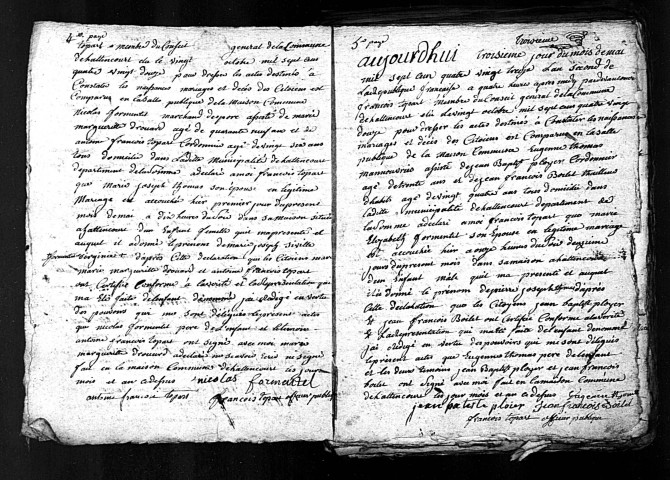 4me page
topart membre du Conseil general de la Commune
dehallencourt elu le vingt octobre mil sept cent
quatre vingt douze pour dresser les actes destinés a
Constater les naissances mariages et décés des Citoiens est
Comparus en la salle publique de la Maison Commune
nicolas formentel marchand assisté de marie
marguerite drouard agé de quarante neuf ans et de
antoine francois topart Cordonnier agé de vingt six ans
tous domicilié dans Laditte Municipalité dehallencourt
departement delasomme a declaré amoi francois topart
que marie joseph thomas son épouse en legitime
Mariage est accouchée hier premier jour du present
mois de mai a dix heures du soir dans sa maison située
ahallencourt dun Enfant femelle qui ma presenté et
auquel il a donné le prenom de marie joseph
virginie d'après Cette declaration que les Citoiens
marie marguerite drouard et antoine francois topart
ont Certifié Conforme a la verité et La Representation qui
ma Eté faite de l'enfant denommé j'ai rédigé en vertu
des pouvoirs qui me sont délégués le present acte
que nicolas formentel pere de l'enfant et le témoin
antoine francois topart ont signé avec moi marie
marguerite drouard a declaré ne savoir ecrire ni signé
fait en la maison Commune dehallencourt les jour
mois et an cidessus nicolas formentel
antoine francois topart francois topart officier public
5e page troisieme
aujourdhui troisieme jour du mois de mai
mil sept cent quatre vingt treize L'an second de
La republique francaise a quatre heures après midy pardevant moi
francois topart Membre du Conseil general de la Commune
dehallencourt elu le vingt octobre mil sept cent quatre vingt
douze pour dresser les actes destinés a Constater les naissances
mariages et décés des Citoiens est Comparus en La salle
publique de la Maison Commune Eugenne thomas
assisté de jean Baptiste ployer Cordonnier
agé de trente ans et de jean francois Boilet
agé de vingt quatre ans tous domicilié dans
Laditte municipalité dehallencourt departement de
La somme a declaré amoi francois topart que marie
Elizabeth formentel son Epouse en legitime mariage
est accouchée hier a onze heures du soir deuxieme
jour du present mois dans sa maison ahallencourt
dun Enfant mâle qui ma presenté et auquel
il a donné le prenom de pierre joseph d'après
Cette declaration que les Citoyens jean baptiste ployer
& jean francois Boilet ont Certifié Conforme a la verité
& La Representation qui ma été faite de l'enfant denommé
j'ai rédigé en vertu des pouvoirs qui me sont délégués
le present acte que Eugenne thomas pere de l'enfant
et les deux temoins jean Baptiste ployer et jean francois
boilet ont signé avec moi fait en la maison Commune
dehallencourt les jour mois et an cidessus
jean patiste ploier jean francois Boilet
francois topart officier publique